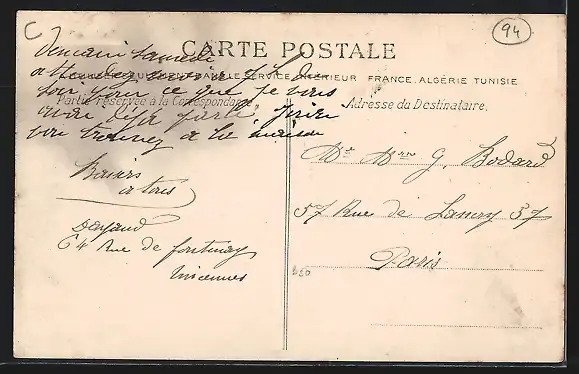 C
94
CARTE POSTALE
SERVICE INTÉRIEUR FRANCE, ALGÉRIE TUNISIE
Partie réservée à la Correspondance
Adresse du Destinataire.
Demain samedi
attendez
soir pour ce que je vous
avais déjà parlé,
vous trouver à la maison
Baisers
à tous
64 Rue de Fontenay
Vincennes
Mr Mme G. Bodard
57 Rue de Lancry 57
Paris